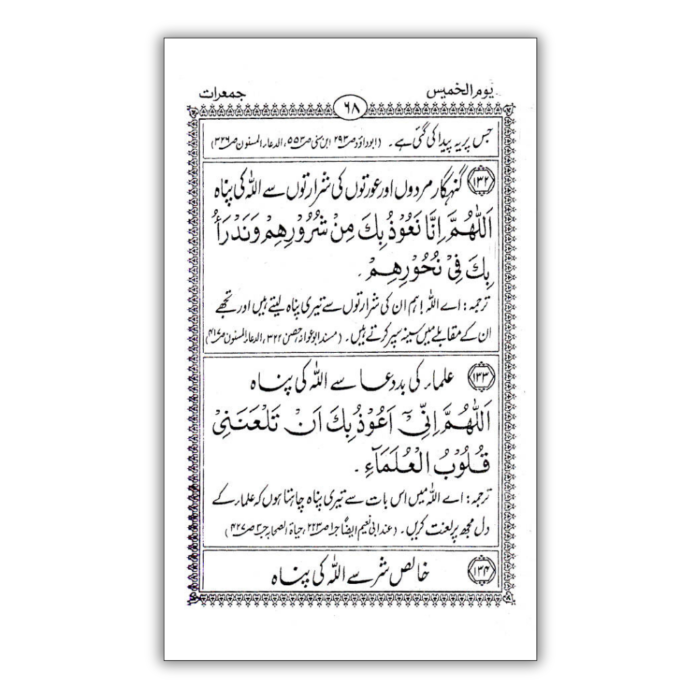 يوم الخميس
جمعرات
٦٨
جس پر یہ پیدا کی گئی ہے۔ (ابوداؤد صـ۲۹۳ ابن سنی صـ۵۵۳، الدعاء المسنون صـ۳۳۶)
۱۳۲ گنہگار مردوں اور عورتوں کی شرارتوں سے اللہ کی پناہ
اَللّٰهُمَّ اِنَّا نَعُوْذُ بِكَ مِنْ شُرُوْرِهِمْ وَنَدْرَأُ
بِكَ فِىْ نُحُوْرِهِمْ.
ترجمہ: اے اللہ! ہم ان کی شرارتوں سے تیری پناہ لیتے ہیں اور تجھے
ان کے مقابلے میں سینہ سپر کرتے ہیں۔ (مسند ابو عوانہ، حصن ۳۲۲، الدعاء المسنون صـ۴۱۷)
۱۳۳ علماء کی بددعا سے اللہ کی پناہ
اَللّٰهُمَّ اِنِّىْٓ اَعُوْذُ بِكَ اَنْ تَلْعَنَنِىْ
قُلُوْبُ الْعُلَمَآءِ.
ترجمہ: اے اللہ میں اس بات سے تیری پناہ چاہتا ہوں کہ علماء کے
دل مجھ پر لعنت کریں۔ (عند ابی نعیم ایضًا جـ۱ صـ۲۲۳، حیاة الصحابہ جـ۳ صـ۴۲۷)
۱۳۴ خالص شر سے اللہ کی پناہ